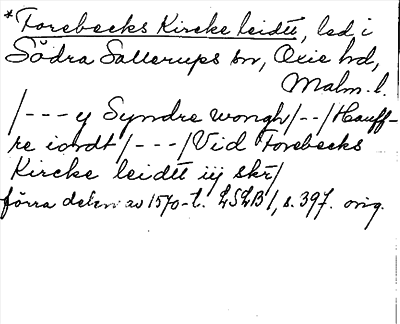 *Forebecks Kircke leidtt, led i
Södra Sallerups sn, Oxie hd,
Malm. l.
/--- y Syndre wongh/--/Hauff-
re iordt/---/Vid Forebecks
Kircke leidtt iij skr/
förra delen av 1570-t. LSLB 1, s. 397. orig.